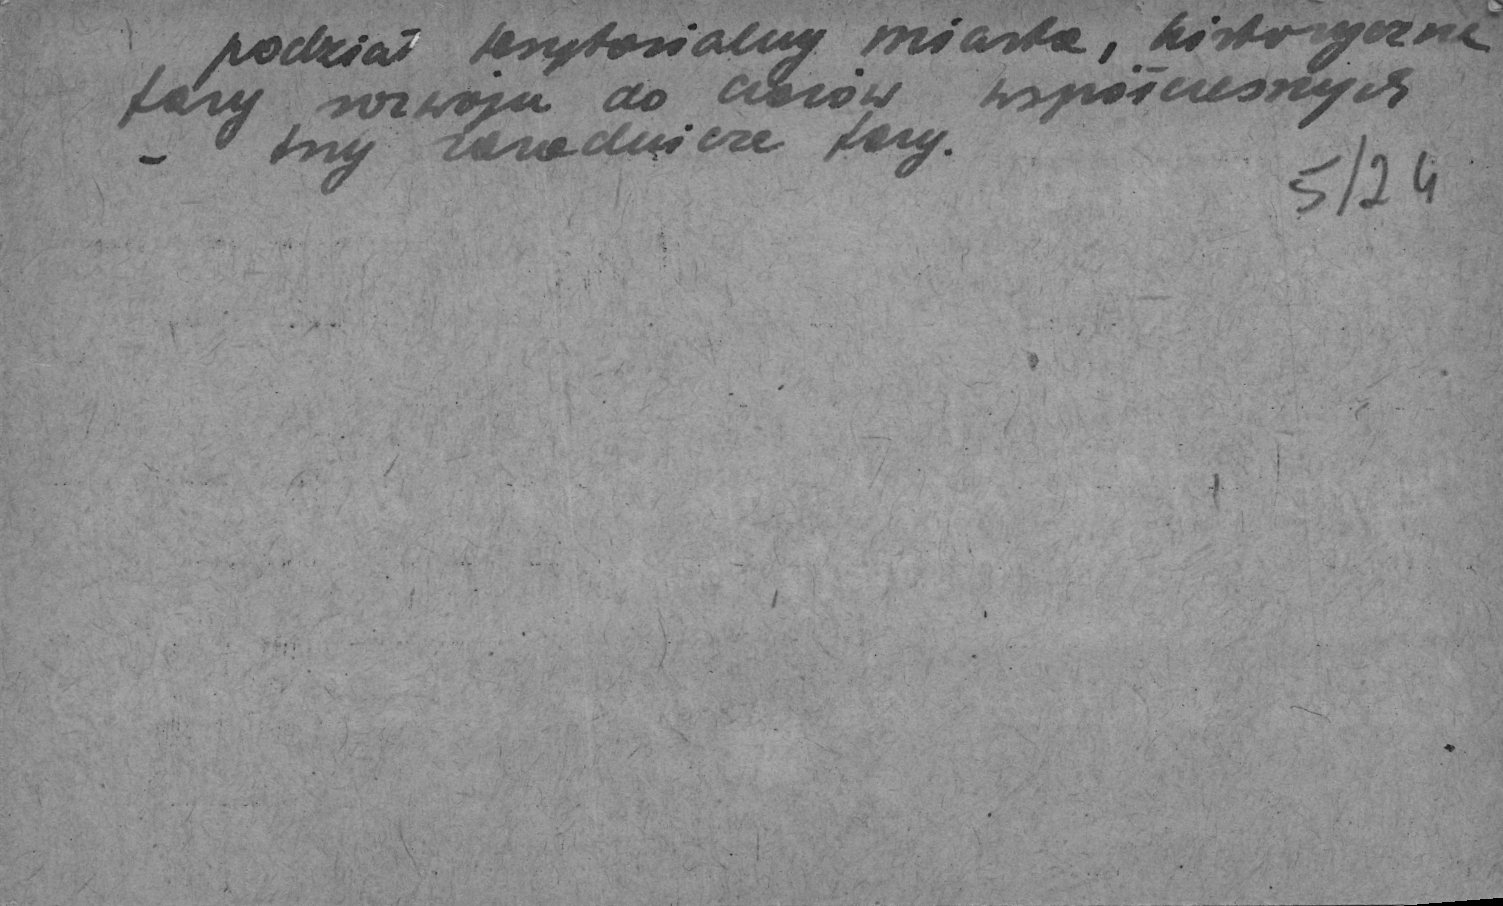 podział terytorialny miasta, historyczne
fazy rozwoju do czasów współczesnych
- trzy zasadnicze fazy.
5/24